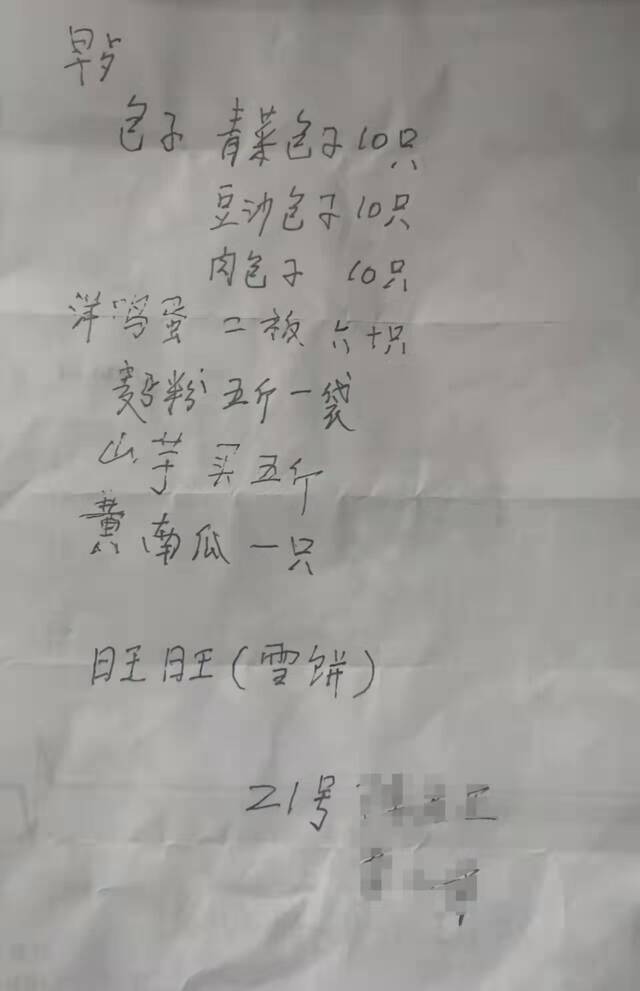 早点
包子 青菜包子10只
豆沙包子10只
肉包子 10只
洋鸡蛋 二板 六十只
麵粉 五斤一袋
山芋 买五斤
黄南瓜 一只
旺旺(雪饼)
21号